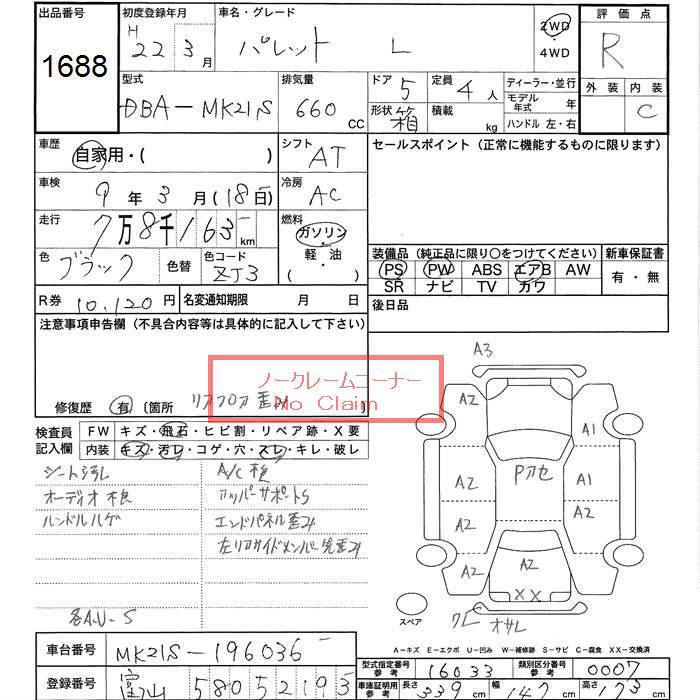 出品番号
1688
初度登録年月
H 22 3月
車名・グレード
パレット L
2WD
・
4WD
評価点
R
外装 内装
C
型式
DBA-MK21S
排気量
660 CC
ドア 5
形状 箱
定員 4人
積載 kg
ディーラー・並行
モデル年式 年
ハンドル 左・右
車歴
自家用・( )
シフト
AT
セールスポイント (正常に機能するものに限ります)
車検
9年3月(18日)
冷房
AC
走行
7万8千163km
燃料
ガソリン
・
軽・油
( )
色
ブラック
色替
色コード
ZJ3
装備品 (純正品に限り○をつけてください)
PS PW ABS エアB AW
SR ナビ TV カワ
新車保証書
有・無
R券 10,120円
名変通知期限 月 日
後日品
注意事項申告欄 (不具合内容等は具体的に記入して下さい)
ノークレームコーナー
No Claim
修復歴 有 〔箇所 リアフロア歪み 〕
検査員
記入欄
FW キズ・飛石・ヒビ割・リペア跡・X要
内装 キズ・汚レ・コゲ・穴・スレ・キレ・破レ
シート汚レ
オーディオ欠
ハンドルハゲ
各A.U-S
アッパーサポートS
エンドパネル歪み
左リアサイドメンバー先歪み
A3
A2
A2
A2
A2
A1
A2
A2
A2
XX
スペア
A-キズ E-エクボ U-凹み W-補修跡 S-サビ C-腐食 XX-交換済
車台番号
MK21S-196036
登録番号
富山 580 5 2193
型式指定番号
参考
16033
類別区分番号
参考
0007
車庫証明用
参考
長さ 339cm 幅 147cm 高さ 173cm